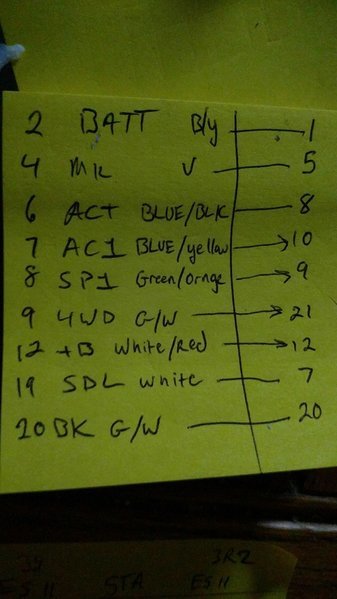 2 BATT B/y 1
4 MR V 5
6 ACT BLUE/BLK 8
7 AC1 BLUE/yellow 10
8 SP1 Green/Ornge 9
9 4WD G/W 21
12 +B White/Red 12
19 SDL White 7
20 BK G/W 20
3R2
ES11 STA ES11